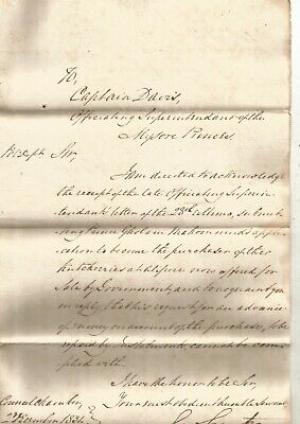 To,
Captain Davis,
Officiating Superintendant of the
Mysore Princes.
Sir,
I am directed to acknowledge
the receipt of the late Officiating Superin-
tendant's letter of the 23rd Ultimo,
Mahomed's appli-
cation to become the purchaser of the
now offered for
Sale by Government, and to request you
in reply, that his request for an advance
of money on account of the purchase, to be
repaid by Instalments cannot be com-
plied with.
I have the honor to be Sir,
Your most obedient humble Servant,
Council Chamber,